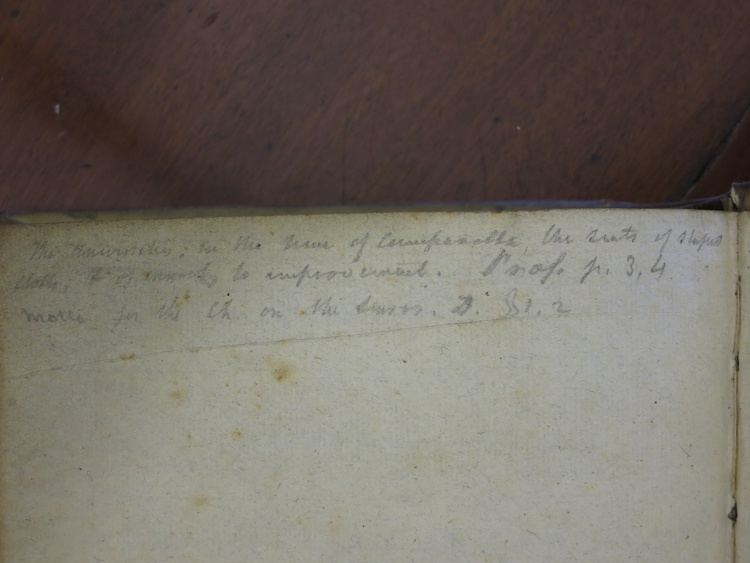 The Universities, in the time of Campanella, the seats of stupid
sloth, & of enmity to improvement. Praef. p. 3, 4
Motto for the Ch. on the Senses. D. 1. 2